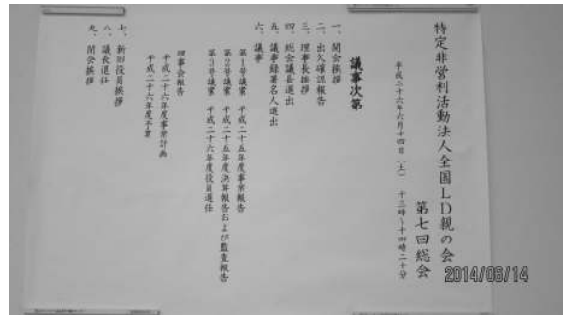 特定非営利活動法人全国LD親の会
第七回総会
平成二十六年六月十四日（土） 十三時～十四時二十分
議事次第
一、開会挨拶
二、出欠確認報告
三、理事長挨拶
四、総会議長選出
五、議事録署名人選出
六、議事
第1号議案 平成二十五年度事業報告
第2号議案 平成二十五年度決算報告および監査報告
第3号議案 平成二十六年度役員選任
理事会報告
平成二十六年度事業計画
平成二十六年度予算
七、新旧役員挨拶
八、議長退任
九、閉会挨拶
2014/06/14